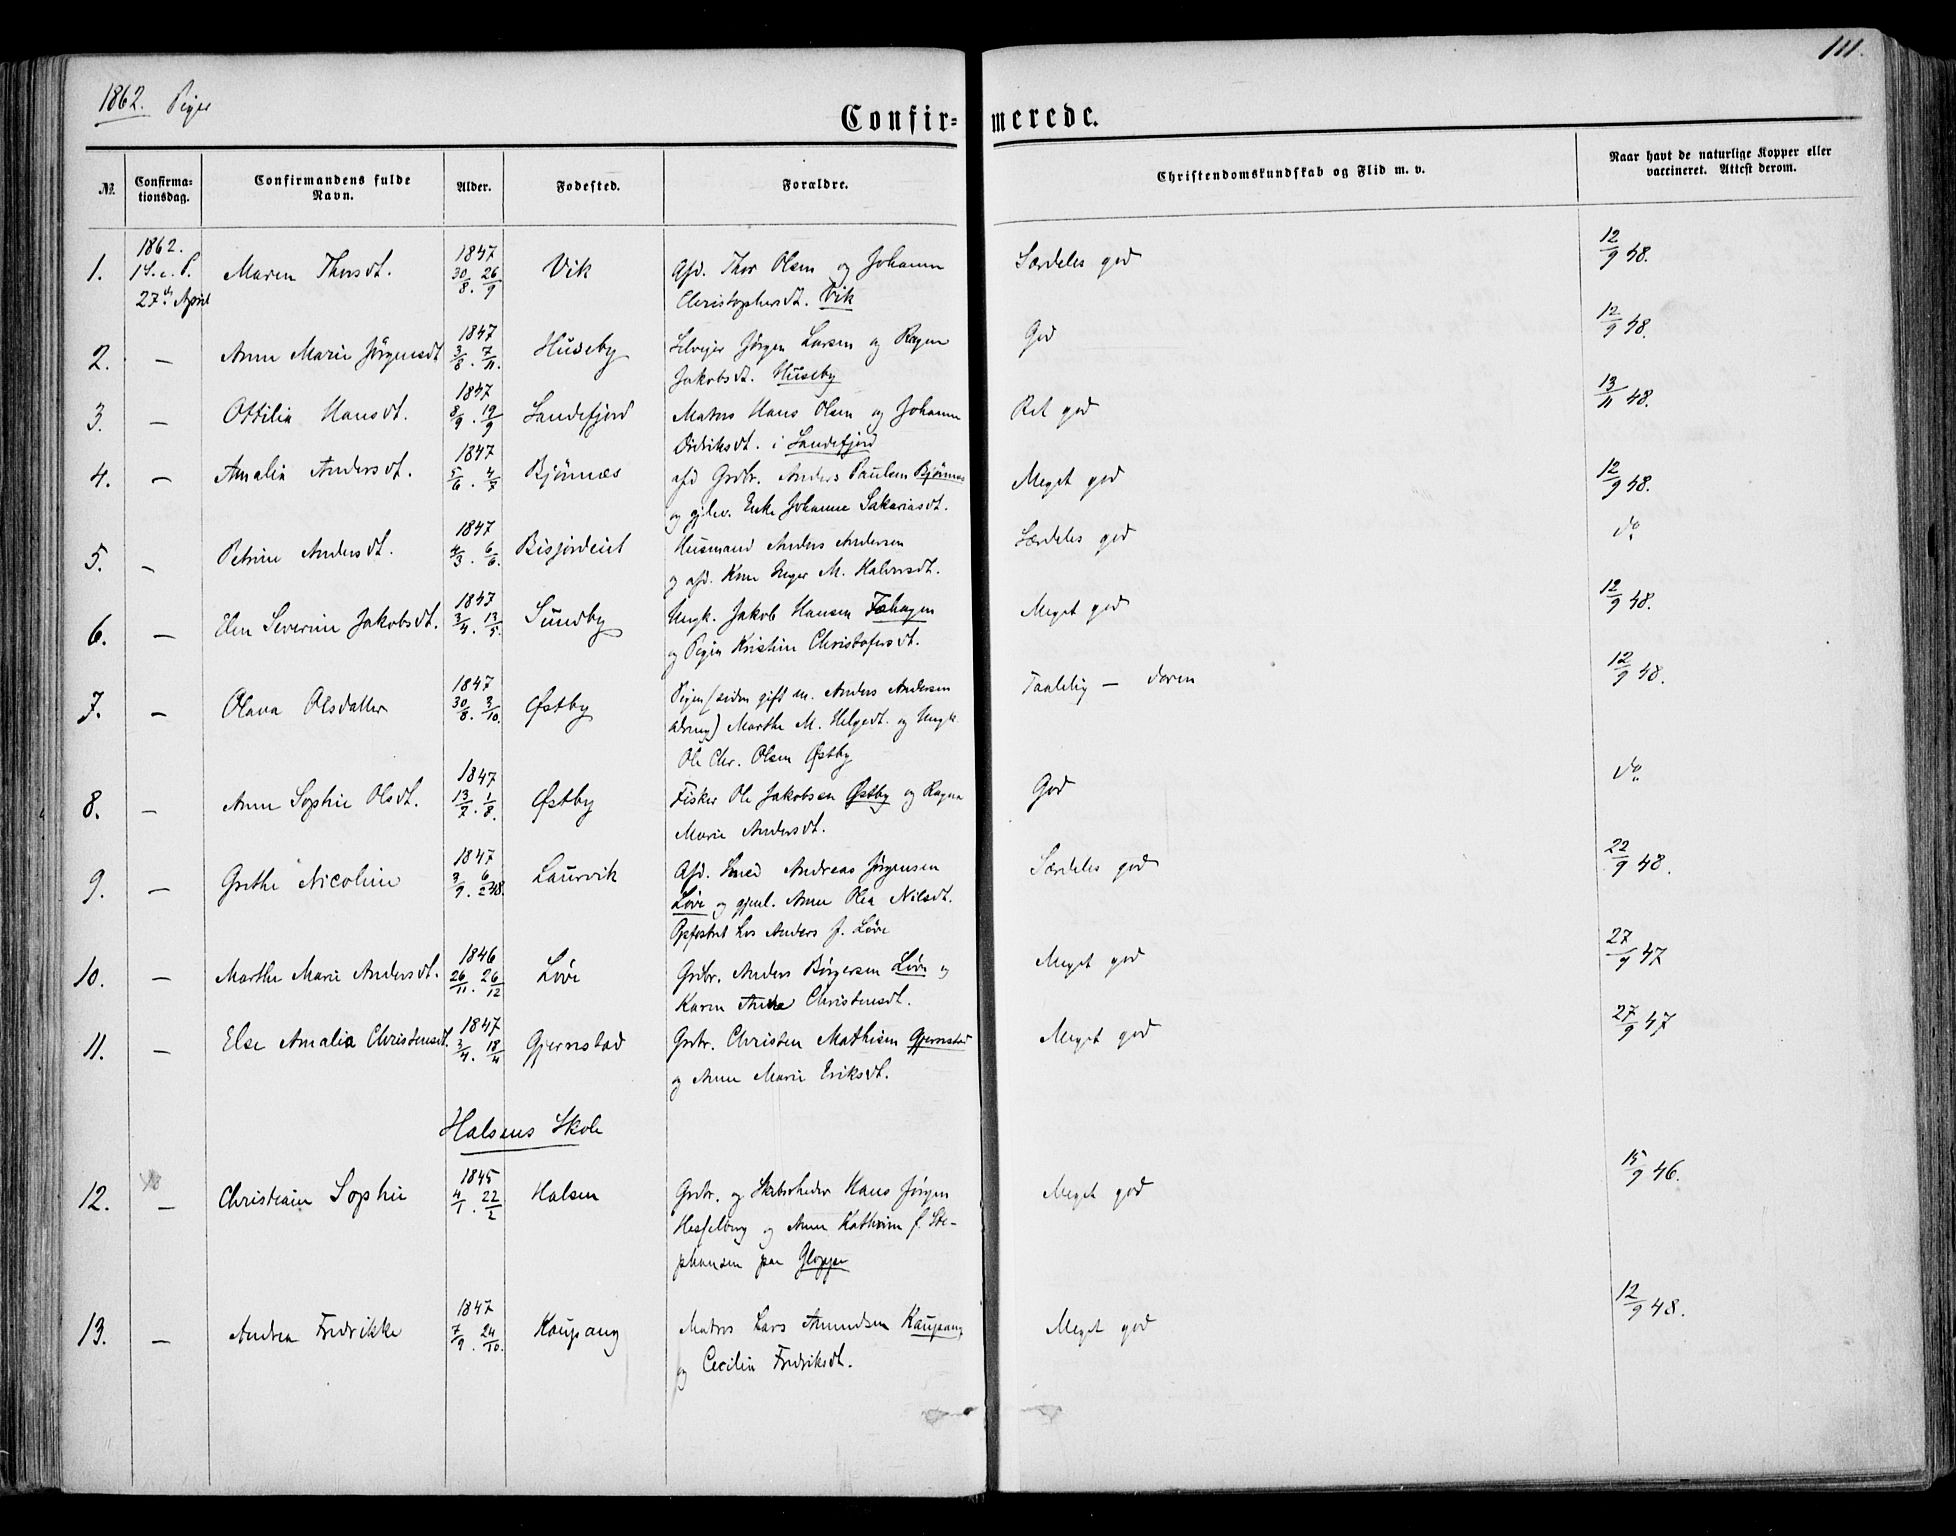 111.
1862. Piger
Confir= merede.
No. Confirma- tionsdag. Confirmandens fulde Navn. Alder. Fødested. Forældre. Christendomskundskab og Flid m. v. Naar havt de naturlige Kopper eller vaccineret. Attest derom.
1. 1862. 27de April Maren Thorsdt. 1847 30/8. 26/9 Vik Afd. Thor Olsen og Johanne Særdeles god 12/9 48.
Christophersdt. Vik
2. — Anne Marie Jørgensdt 1847 3/8. 7/11. Huseby Selveier Jørgen Larsen og Ragne God 12/9 48.
Jakobsdt. Huseby
3. — Ottilia Hansdt. 1847 8/9. 19/9 Sandefjord Matros Hans Olsen og Johanne Ret god 13/11 48.
Didriksdt. i Sandefjord
4. — Amalia Andersdt. 1847 5/6. 4/7 Bjønnes afd Grdbr. Anders Paulsen Bjønnes Meget god 12/9 48.
og gjlev. Enke Johanne Sakariasdt.
5. — Petrine Andersdt. 1847 4/3. 6/6. Bisjordeiet Husmand Anders Andersen Særdeles god do
og afd. Kone Inger M. Halvorsdt.
6. — Elen Severine Jakobsdt. 1847 3/4. 13/5. Sundby Ungk. Jakob Hansen Fæhagen Meget god 12/9 48.
og Pigen Kristine Christofersdt.
7. — Olava Olsdatter 1847 30/8. 3/10. Østby Pigen (siden gift m. Anders Andersen Taalelig — doven 12/9 48.
Marthe M. Helgedt. og Ungk.
Ole Chr. Olsen Østby
8. — Anne Sophie Olsdt. 1847 13/7. 1/8. Østby Fisker Ole Jakobsen Østby og Ragna God do
Marie Andersdt.
9. — Grethe Nicoline 1847 3/9. 6/2 48. Laurvik Afd. Smed Andreas Jørgensen Særdeles god 22/9 48.
Løve og gjenl. Anne Olea Nilsdt.
Opfostret hos Anders f. Løve
10. — Marthe Marie Andersdt. 1846 26/11. 26/12 Løve Grdbr. Anders Børgersen Løve og Meget god 27/9 47
Karen Anne Christensdt.
11. — Else Amalia Christensdt. 1847 3/4. 18/4 Gjernstad Grdbr. Christen Mathisen Gjernstad Meget god 27/9 47
og Anne Marie Eriksdt.
Halsens Skole
12. — Christiane Sophie 1845 4/1. 22/2 Halsen Grdbr. og Skibsrheder Hans Jørgen Meget god 15/9 46.
Hesselberg og Anne Kathrine f. Ste-
phansen paa Gloppe
13. — Andrea Fredrikke 1847 7/9. 24/10. Kaupang Matros Lars Amundsen Kaupang Meget god 12/9 48.
og Cecilia Fredriksdt.